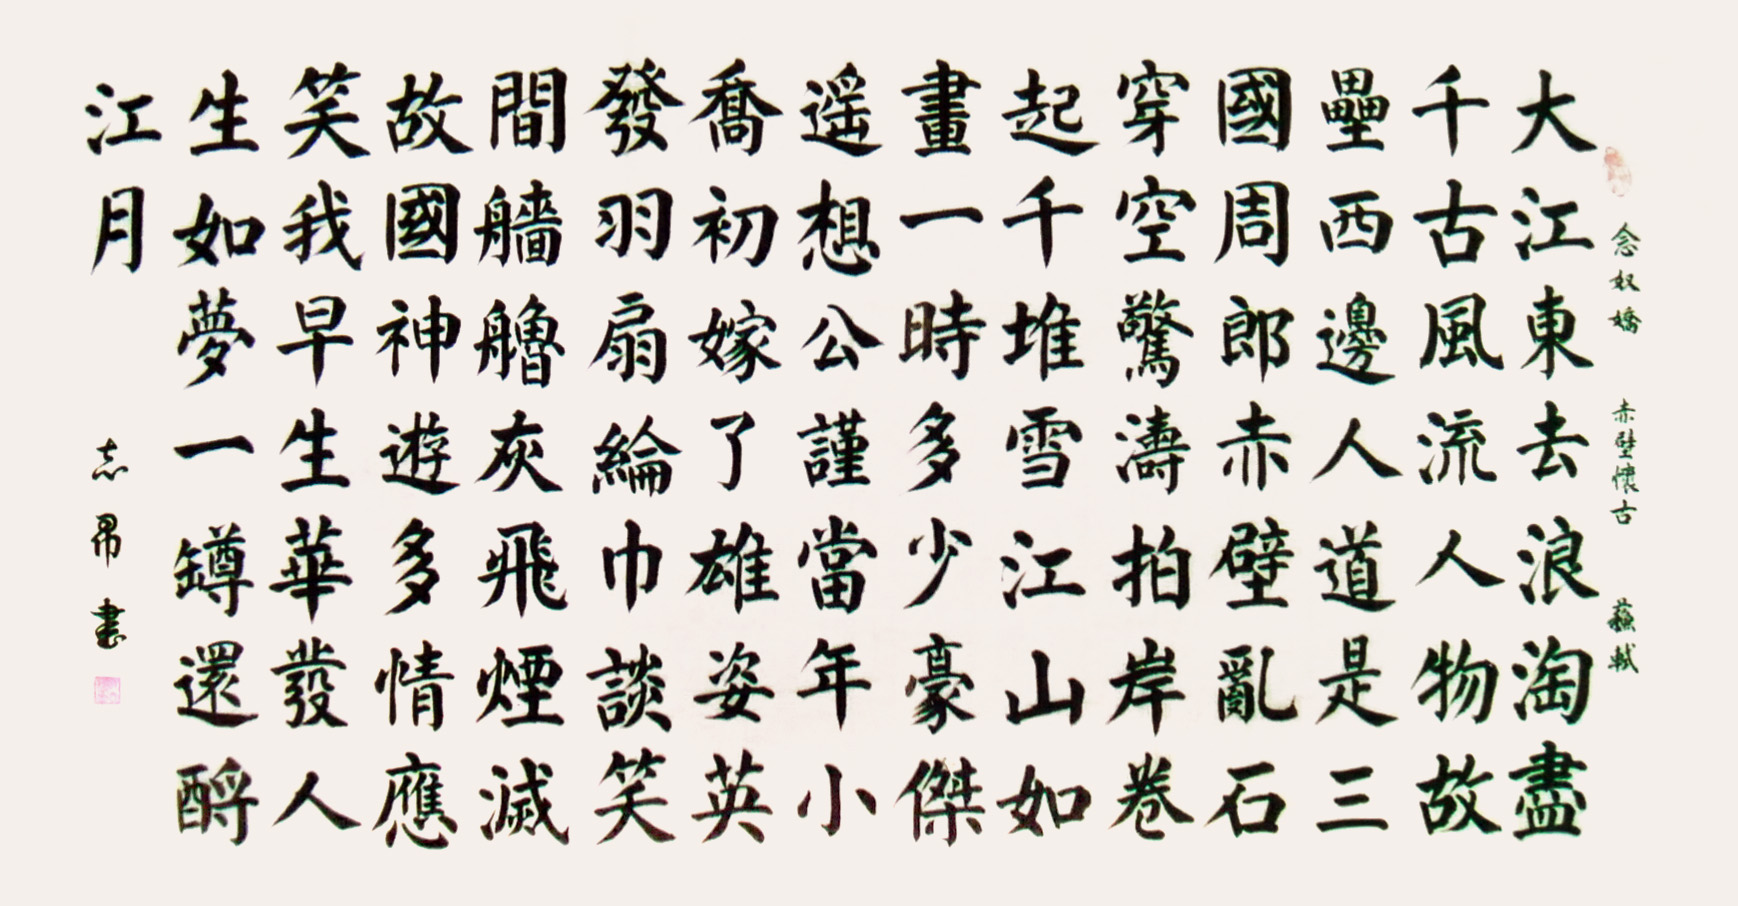 念奴嬌 赤壁懷古 蘇軾
大江東去浪淘盡
千古風流人物故
壘西邊人道是三
國周郎赤壁亂石
穿空驚濤拍岸卷
起千堆雪江山如
畫一時多少豪傑
遥想公謹當年小
喬初嫁了雄姿英
發羽扇綸巾談笑
間艢艣灰飛煙滅
故國神遊多情應
笑我早生華發人
生如夢一罇還酹
江月
志 書